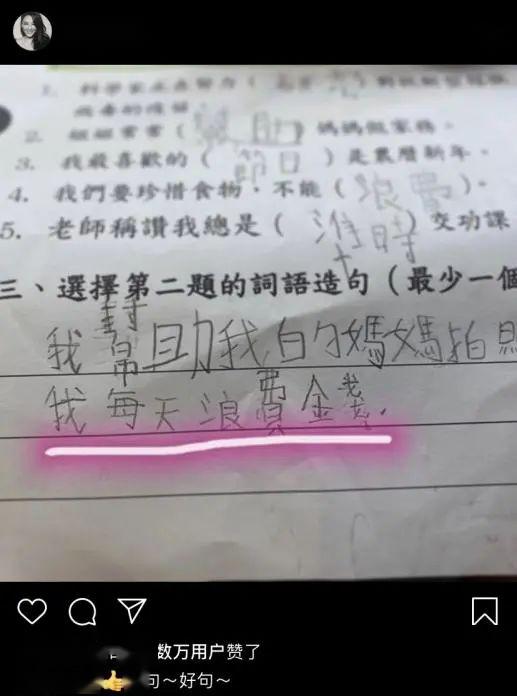 1. 科學家正在努力（
病毒的疫苗
2. 姐姐常常（幫助）媽媽做家務。
3. 我最喜歡的（節日）是農曆新年。
4. 我們要珍惜食物，不能（浪費）。
5. 老師稱讚我總是（準時）交功課
三、選擇第二題的詞語造句（最少一個
我幫助我的媽媽拍照
我每天浪費金錢.
数万用户赞了
👍 句～好句～